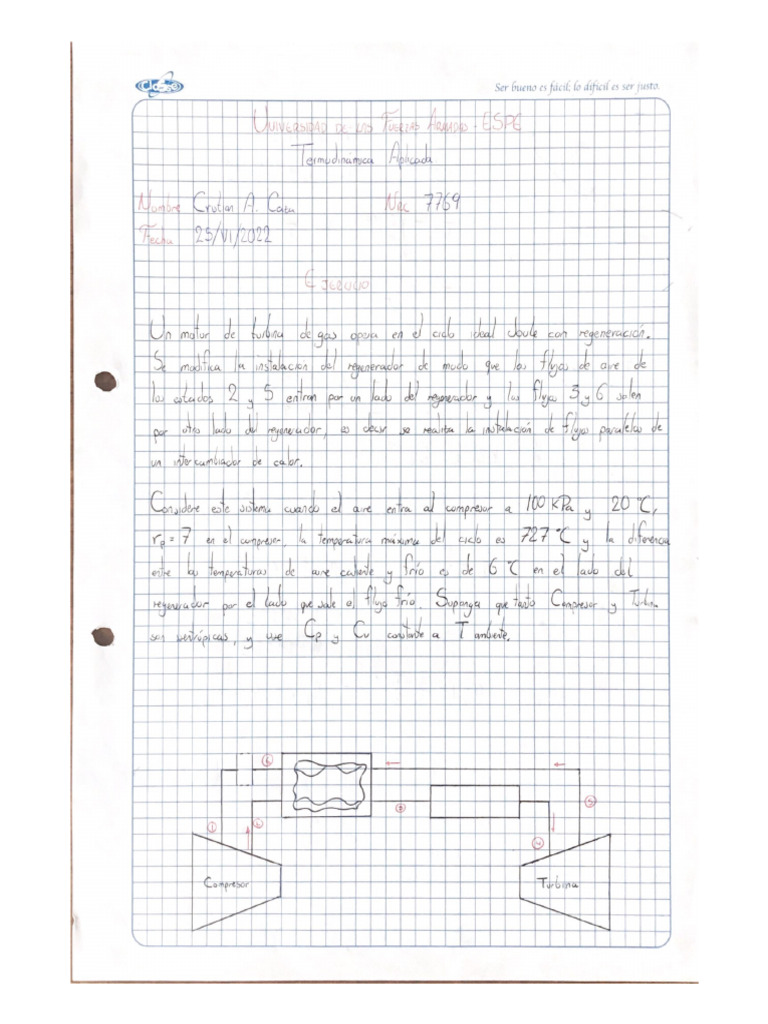 Clase
Ser bueno es fácil; lo difícil es ser justo.
Universidad de las Fuerzas Armadas - ESPE
Termodinámica Aplicada
Nombre Cristian A. Caza Nrc 7769
Fecha 25/VI/2022
Ejercicio
Un motor de turbina de gas opera en el ciclo ideal Joule con regeneración.
Se modifica la instalación del regenerador de modo que los flujos de aire de
los estados 2 y 5 entran por un lado del regenerador y los flujos 3 y 6 salen
por otro lado del regenerador, es decir se realiza la instalación de flujos paralelos de
un intercambiador de calor.
Considere este sistema cuando el aire entra al compresor a 100 kPa y 20 °C,
rp = 7 en el compresor, la temperatura máxima del ciclo es 727 °C y la diferencia
entre las temperaturas de aire caliente y frío es de 6 °C en el lado del
regenerador por el lado que sale el flujo frío. Suponga que tanto Compresor y Turbina
son isentrópicas, y use Cp y Cv constante a T ambiente.
6
5
3
1
2
4
Compresor
Turbina